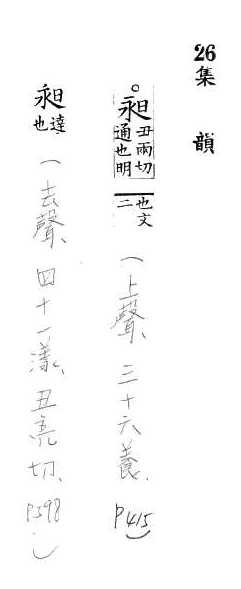 26 集韻
○昶丑兩切通也明也文二(上聲、三十六養、P415)
昶達也(去聲、四十一漾、丑亮切、P598.)